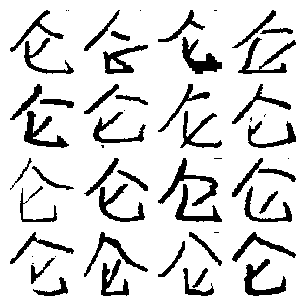 仑仑仑仑
仑仑仑仑
仑仑仑仑
仑仑仑仑